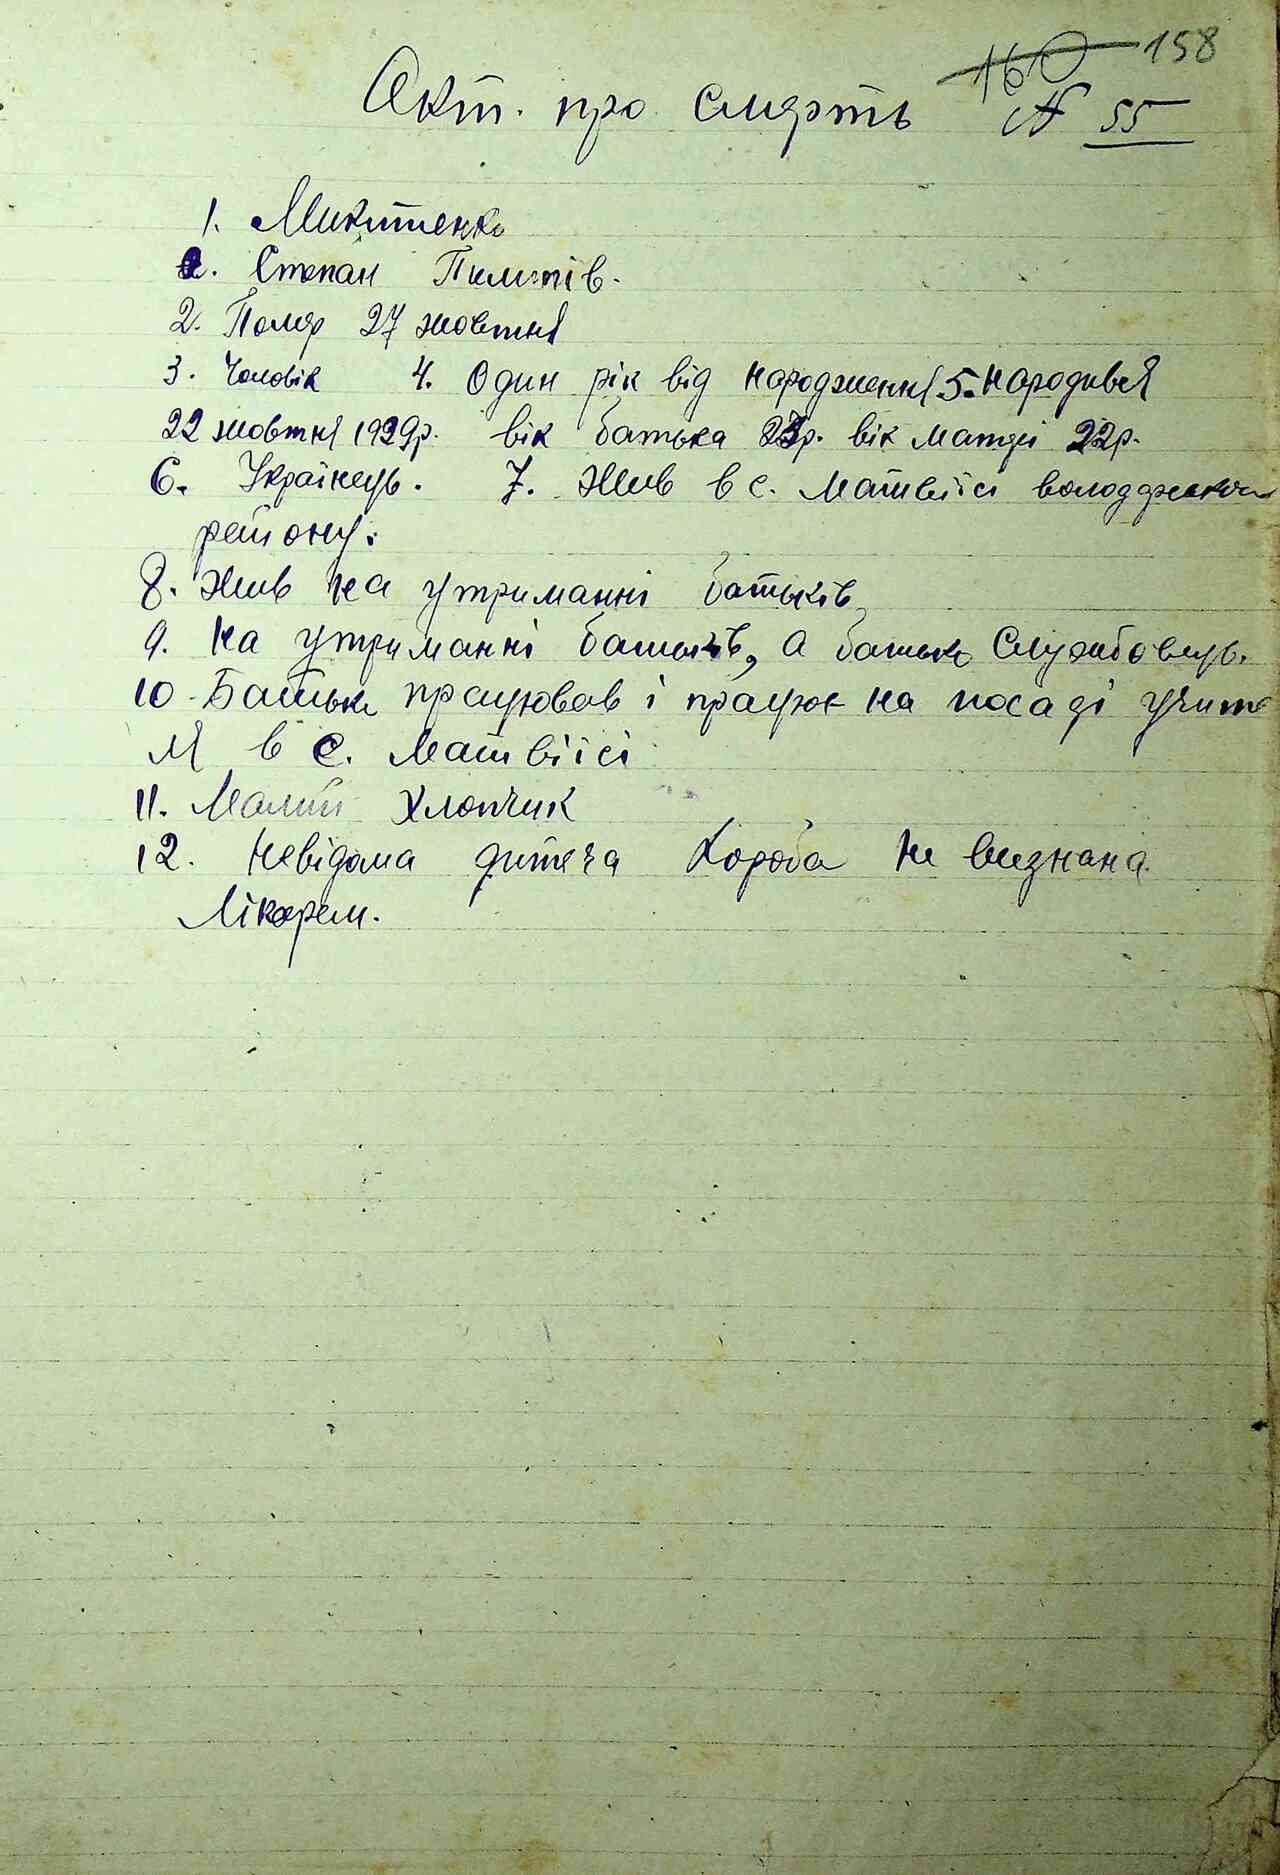 160 158
Акт. про смерть № 55
1. Микитенко
Степан Пилипів.
2. Помер 27 жовтня
3. Чоловік 4. Один рік від народження 5. Народився
22 жовтня 1929р. вік батька 23р. вік матері 22р.
6. Українець. 7. Жив в с. Матвіїсі
району.
8. Жив на утриманні батьків
9. На утриманні батьків, а батько Службовець.
10. Батько працював і працює на посаді учите
ля в с. Матвіїсі
11. Малий хлопчик
12. Невідома дитяча хороба не визнана
лікарем.